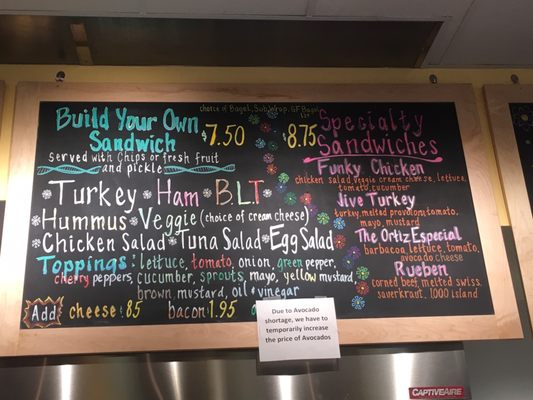 choice of Bagel, Sub, Wrap, GF Bagel
Build Your Own
Sandwich
$7.50
served with chips or fresh fruit
and pickle
Turkey Ham B.L.T
Hummus Veggie (choice of cream cheese)
Chicken Salad Tuna Salad Egg Salad
Toppings: lettuce, tomato, onion, green pepper,
cherry peppers, cucumber, sprouts, mayo, yellow mustard,
brown mustard, oil & vinegar
Add cheese .85 bacon 1.95
$8.75
Specialty
Sandwiches
Funky Chicken
chicken salad, veggie cream cheese, lettuce,
tomato, cucumber
Jive Turkey
turkey, melted provolone, tomato,
mayo, mustard
The Ortiz Especial
barbacoa, lettuce, tomato,
avocado, cheese
Rueben
corned beef, melted swiss,
sauerkraut, 1000 island
Due to Avocado
shortage, we have to
temporarily increase
the price of Avocados
CAPTIVEAIRE